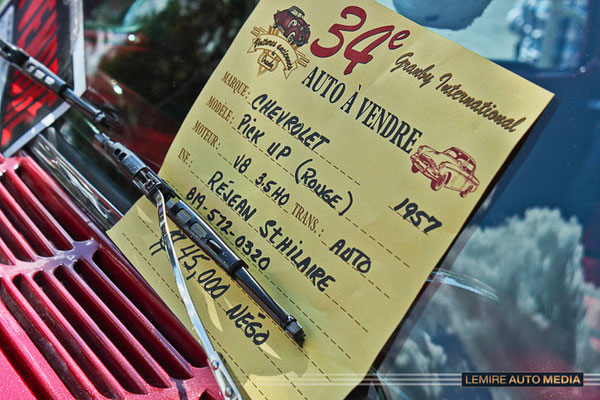 34e
Granby International
Voitures anciennes
de Granby
AUTO À VENDRE
MARQUE: CHEVROLET
MODÈLE: PICK UP (ROUGE) 1957
MOTEUR: V8 35HO TRANS.: AUTO
INF.: RÉJEAN STHILAIRE
819-572-0320
$45,000 NÉGO
LEMIRE AUTO MEDIA